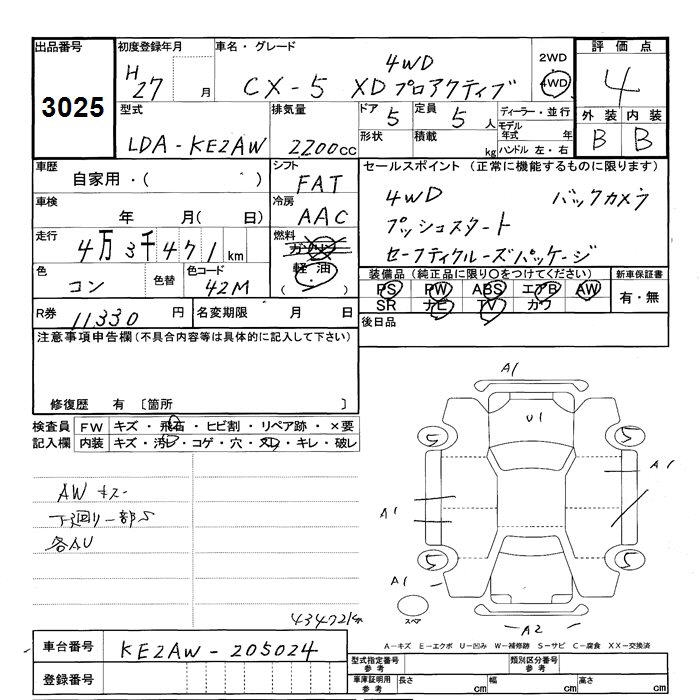 出品番号
3025
初度登録年月
H
27 月
車名・グレード
4WD
CX-5 XD プロアクティブ
2WD
4WD
評価点
4
外装 内装
B B
型式
LDA-KE2AW
排気量
2200cc
ドア
5
定員
5人
形状
積載
kg
ディーラー・並行
モデル
年式 年
ハンドル 左・右
車歴
自家用・( )
シフト
FAT
セールスポイント (正常に機能するものに限ります)
4WD バックカメラ
プッシュスタート
セーフティクルーズパッケージ
車検
年 月( 日)
冷房
AAC
走行
4万3千471km
燃料
ガソリン
軽油
( )
色
コン
色替
色コード
42M
装備品 (純正品に限り○をつけてください)
PS PW ABS エアB AW
SR ナビ TV カワ
新車保証書
有・無
R券
11330円
名変期限 月 日
後日品
注意事項申告欄 (不具合内容等は具体的に記入して下さい)
修復歴 有 〔箇所 〕
検査員
記入欄
FW キズ・飛石・ヒビ割・リペア跡・×要
内装 キズ・汚レ・コゲ・穴・スレ・キレ・破レ
AW キズ
下廻り一部S
各AU
43472km
A1
U1
5
5
A1
A1
5
5
A1
スペア
A2
A-キズ E-エクボ U-凹み W-補修跡 S-サビ C-腐食 XX-交換済
車台番号
KE2AW-205024
登録番号
型式指定番号
参考
類別区分番号
参考
車庫証明用
参考
長さ cm
幅 cm
高さ cm